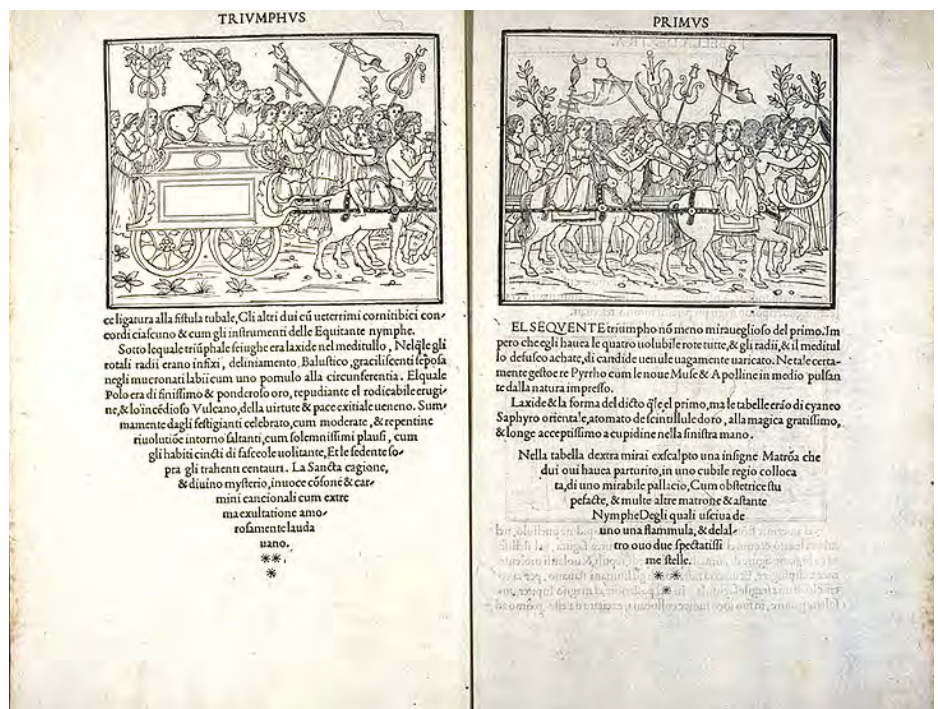 TRIVMPHVS
ce ligatura alla fistula tubale, Gli altri dui cū ueterrimi cornitibici con-
cordi ciascuno & cum gli instrumenti delle Equitante nymphe.
Sotto lequale triūphale seiughe era laxide nel meditullo, Nelqle gli
rotali radii erano infixi, deliniamento Balustico, graciliscenti seposa
negli mucronati labii cum uno pomulo alla circunferentia. Elquale
Polo era di finissimo & ponderoso oro, repudiante el rodicabile erugi-
ne, & lo'incēdioso Vulcano, della uirtute & pace exitiale ueneno. Sum-
mamente dagli festigianti celebrato, cum moderate, & repentine
riuolutiōe intorno saltanti, cum solemnissimi plausi, cum
gli habiti cincti di fasceole uolitante, Et le sedente so-
pra gli trahenti centauri. La Sancta cagione,
& diuino mysterio, inuoce cōsone & car-
mini cancionali cum extre
ma exultatione amo-
rosamente lauda
uano.
***
PRIMVS
EL SEQVENTE triumpho nō meno miraueglioso del primo. Im
pero che egli hauea le quatro uolubile rote tutte, & gli radii, & il meditul
lo defusco achate, di candide uenule uagamente uaricato. Netale certa-
mente gestoe re Pyrrho cum le noue Muse & Apolline in medio pulsan
te dalla natura impresso.
Laxide & la forma del dicto qle el primo, ma le tabelle erāo di cyaneo
Saphyro orientale, atomato de scintillule doro, alla magica gratissimo,
& longe acceptissimo a cupidine nella sinistra mano.
Nella tabella dextra mirai exscalpto una insigne Matrōa che
dui oui hauea parturito, in uno cubile regio colloca
ta, di uno mirabile pallacio, Cum obstetrice stu
pefacte, & multe altre matrone & astante
Nymphe Degli quali usciua de
uno una flammula, & delal-
tro ouo due spectatissi
me stelle.
***